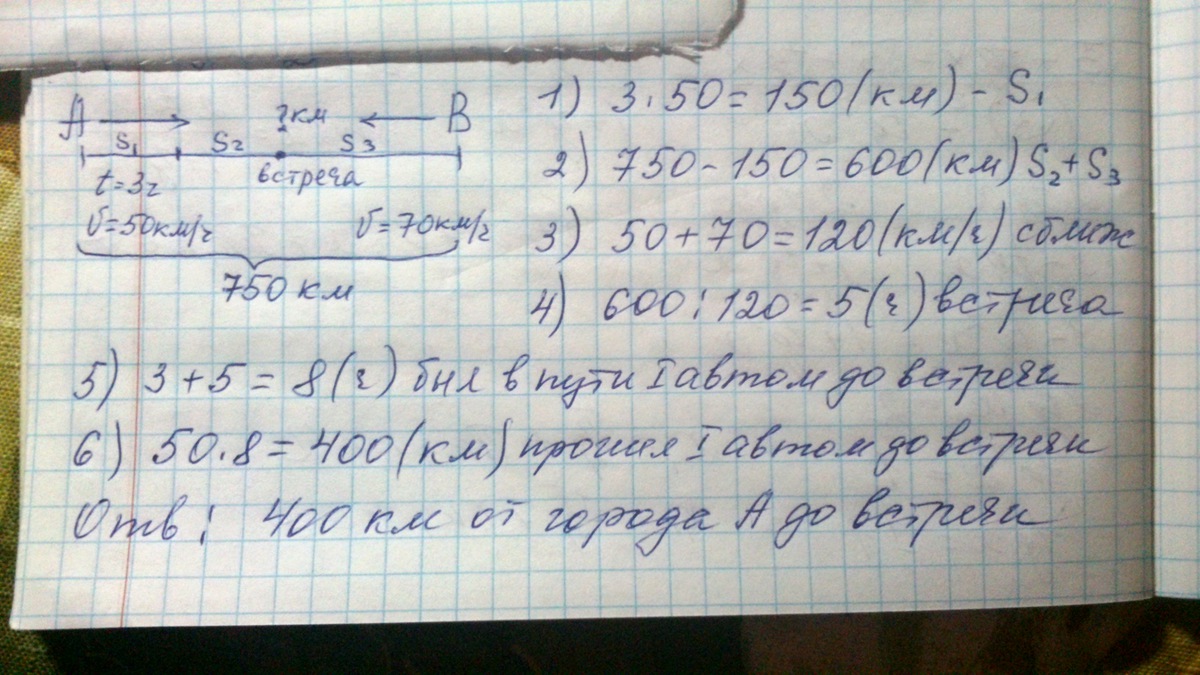 A ? км B
S₁ S₂ S₃
t=3ч встреча
v=50км/ч v=70км/ч
750 км
1) 3·50=150(км) - S₁
2) 750-150=600(км) S₂+S₃
3) 50+70=120(км/ч) сближ
4) 600:120=5(ч) встреча
5) 3+5=8(ч) был в пути I автом до встречи
6) 50·8=400(км) прошел I автом до встречи
Отв: 400 км от города А до встречи